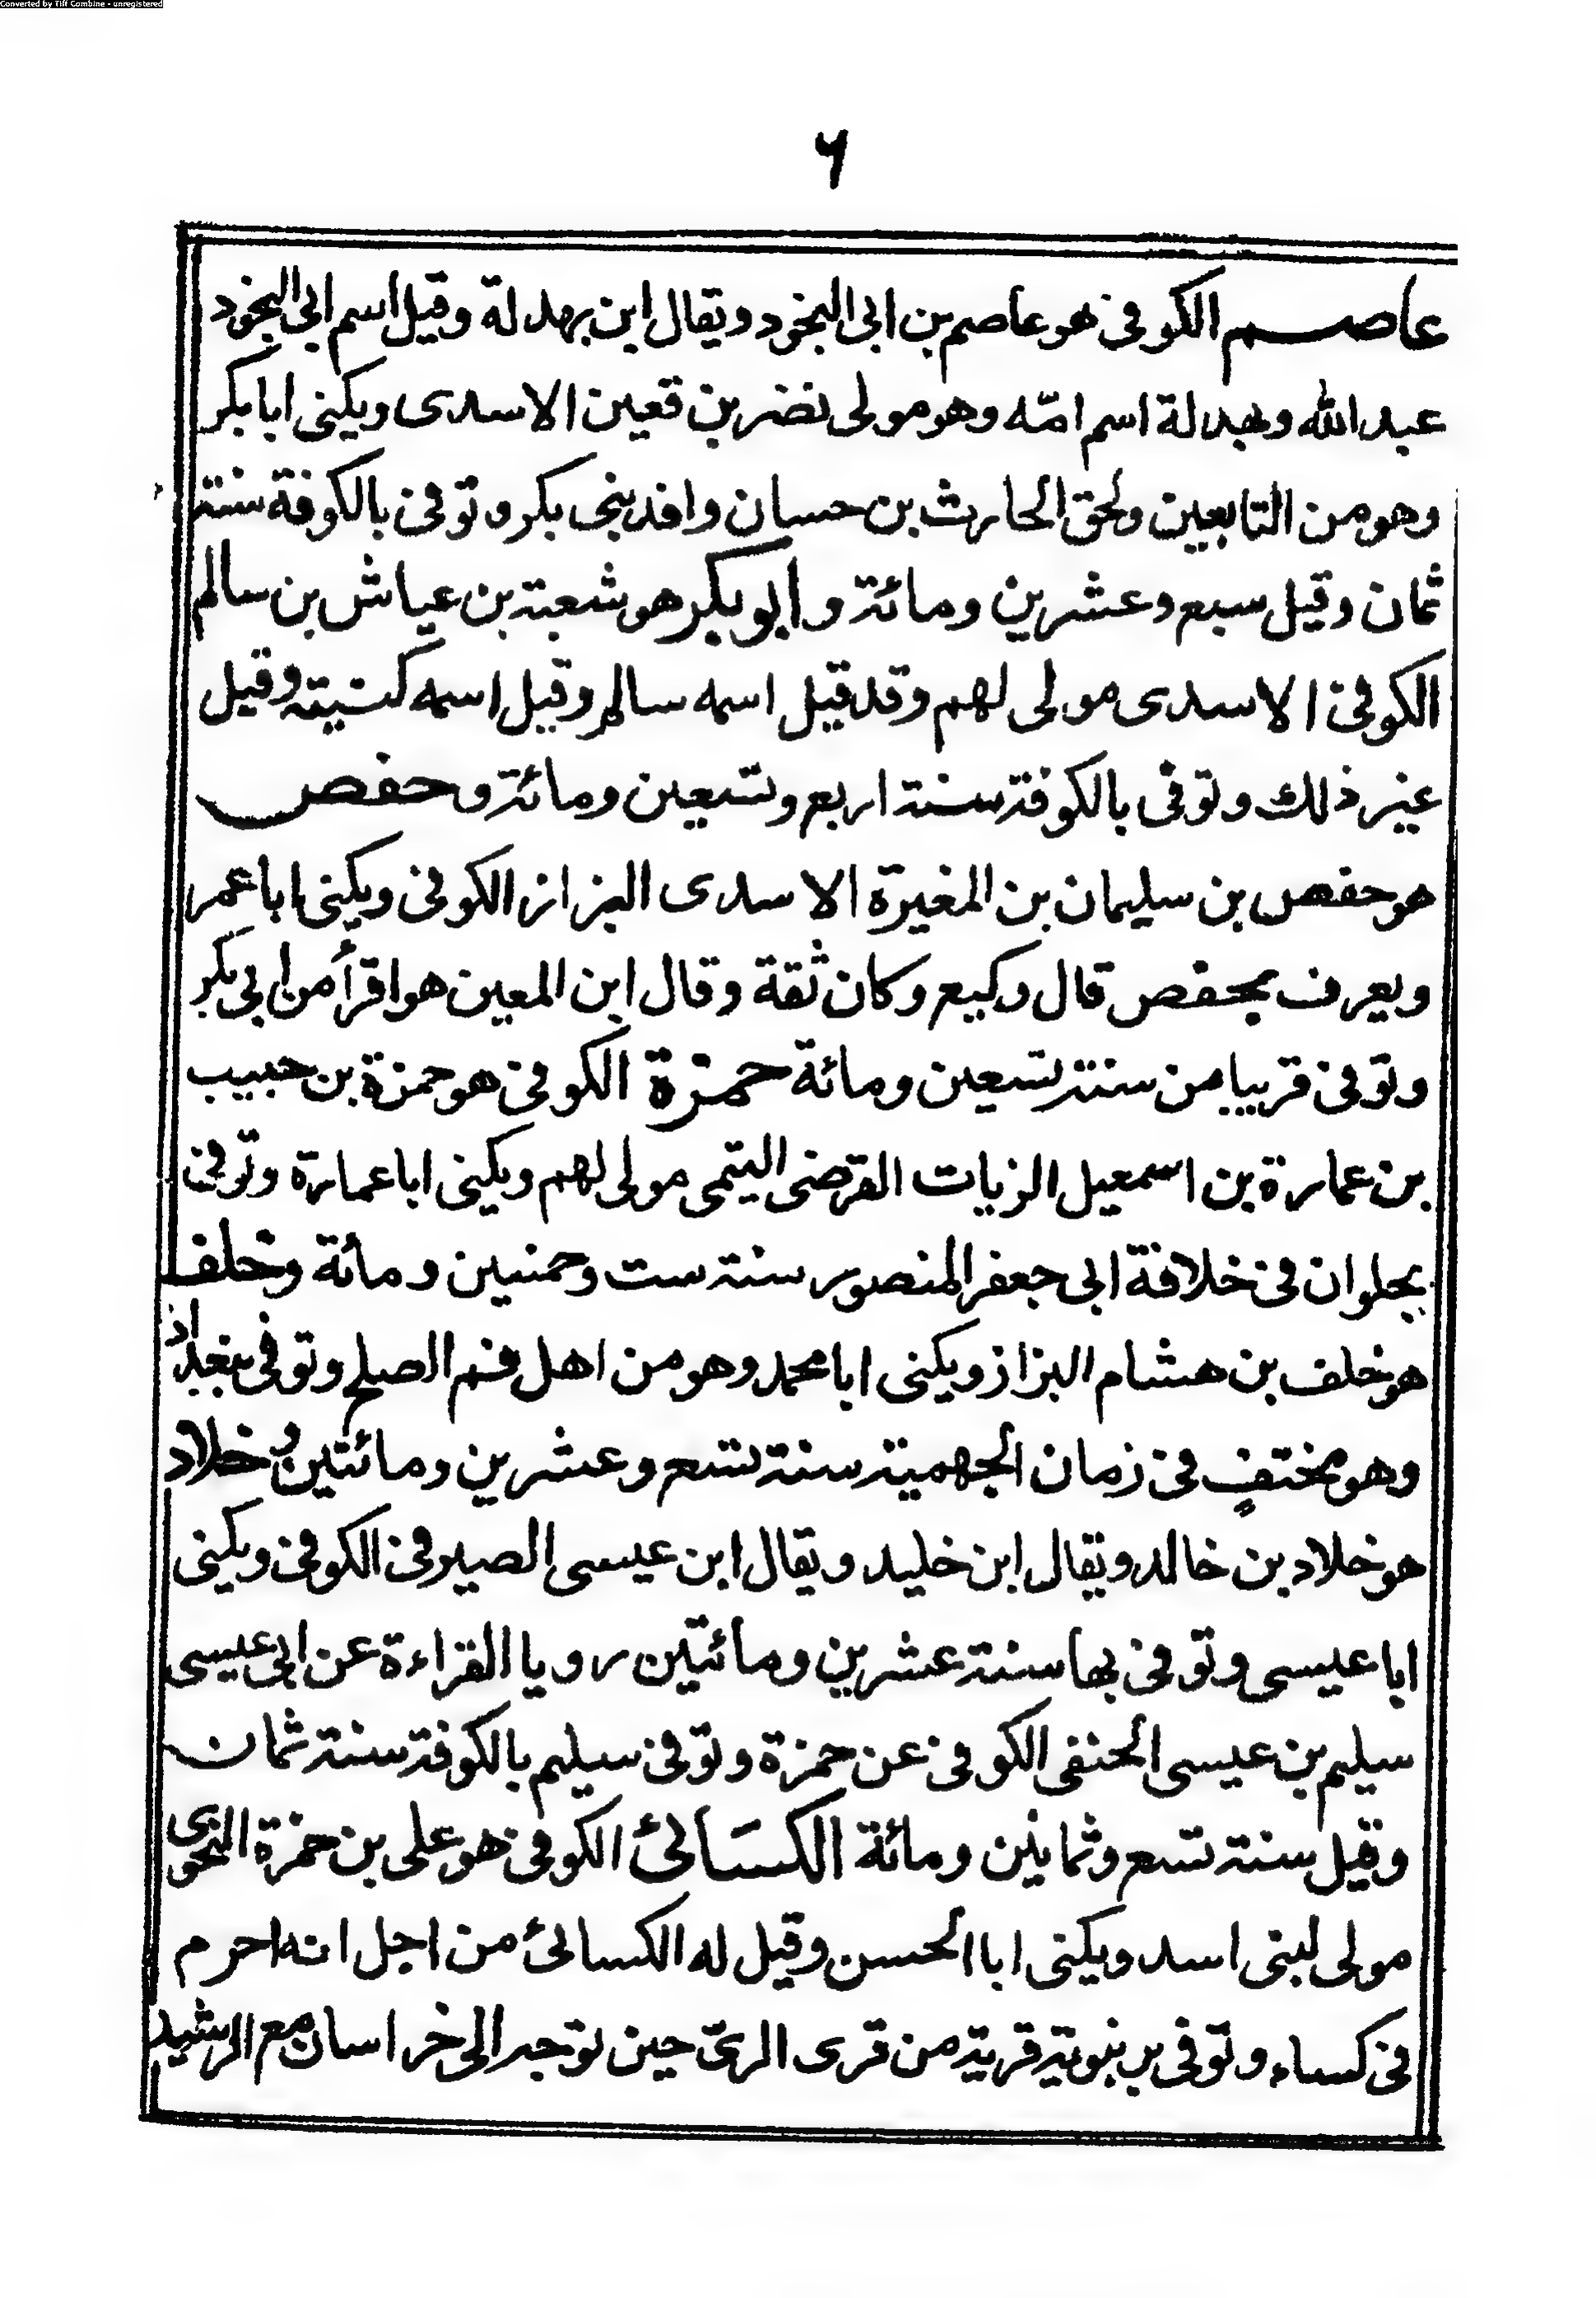 Converted by Tiff Combine - unregistered
٦
عاصم الكوفى هو عاصم بن ابى النجود ويقال ابن بهدلة وقيل اسم ابى النجود
عبد الله وبهدلة اسم امّه وهو مولى نضر بن قعين الاسدى ويكنى ابا بكر
وهو من التابعين ولحق الحارث بن حسان وافد بنى بكر وتوفى بالكوفة سنة
ثمان وقيل سبع وعشرين ومائة وابو بكر هو شعبة بن عياش بن سالم
الكوفى الاسدى مولى لهم وقد قيل اسمه سالم وقيل اسمه كنيته وقيل
غير ذلك وتوفى بالكوفة سنة اربع وتسعين ومائة وحفص
هو حفص بن سليمان بن المغيرة الاسدى البزاز الكوفى ويكنى ابا عمر
ويعرف بحفص قال وكيع وكان ثقة وقال ابن المعين هو اقرأ من ابى بكر
وتوفى قريبا من سنة تسعين ومائة حمزة الكوفى هو حمزة بن حبيب
بن عمارة بن اسمعيل الزيات القرضى التيمى مولى لهم ويكنى ابا عمارة وتوفى
بحلوان فى خلافة ابى جعفر المنصور سنة ست وخمسين ومائة وخلف
هو خلف بن هشام البزاز ويكنى ابا محمد وهو من اهل فم الصلح وتوفى ببغداد
وهو مختفٍ فى زمان الجهمية سنة تسع وعشرين ومائتين وخلاد
هو خلاد بن خالد ويقال ابن خليد ويقال ابن عيسى الصيرفى الكوفى ويكنى
ابا عيسى وتوفى بها سنة عشرين ومائتين رويا القراءة عن ابى عيسى
سليم بن عيسى الحنفى الكوفى عن حمزة وتوفى سليم بالكوفة سنة ثمان
وقيل سنة تسع وثمانين ومائة الكسَائى الكوفى هو على بن حمزة النحوى
مولى لبنى اسد ويكنى ابا الحسن وقيل له الكسائى من اجل انه احرم
فى كساء وتوفى برنبوية قرية من قرى الرىّ حين توجه الى خراسان مع الرشيد